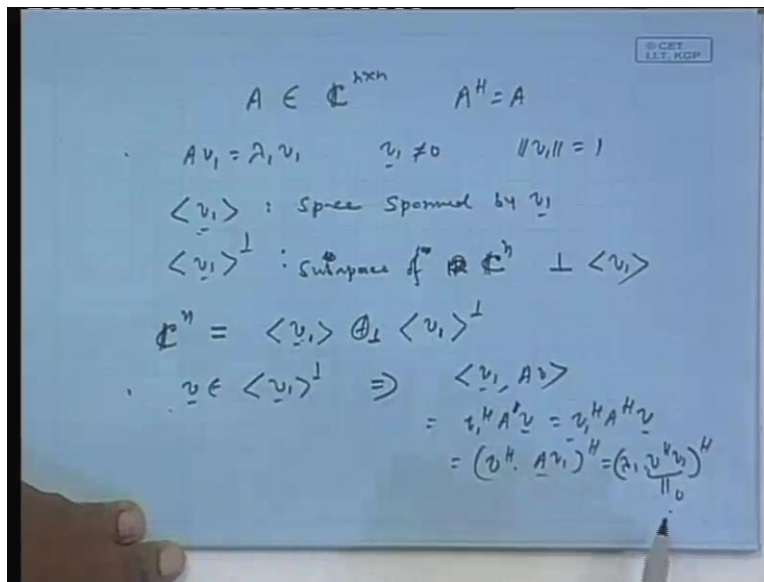 © CET
I.I.T. KGP
A ∈ ℂⁿˣⁿ Aᴴ = A
Av₁ = λ₁v₁ v₁ ≠ 0 ||v₁|| = 1
<v₁> : Space Spanned by v₁
<v₁>^⊥ : Subspace of ℂⁿ ⊥ <v₁>
ℂⁿ = <v₁> ⊕_⊥ <v₁>^⊥
v ∈ <v₁>^⊥ ⇒ <v₁, Av>
= v₁ᴴ A v = v₁ᴴ Aᴴ v
= (vᴴ. Av₁)ᴴ = (λ₁ vᴴv₁)ᴴ
|| 0